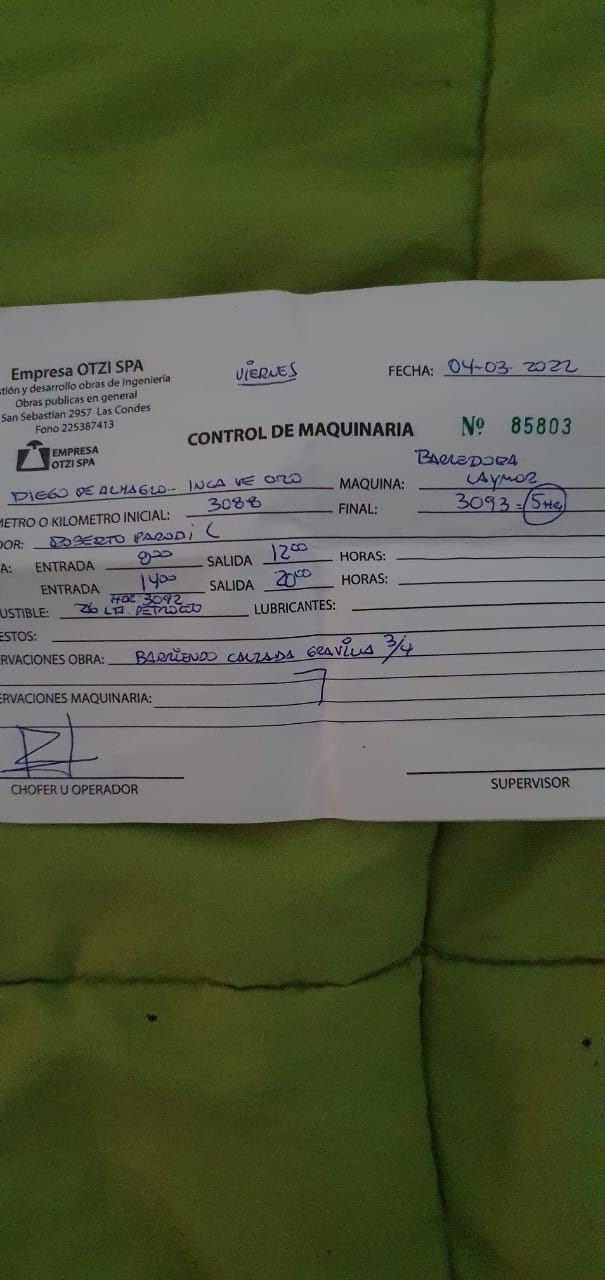 Empresa OTZI SPA
VIERNES
FECHA: 04-03-2022
stión y desarrollo obras de Ingeniería
Obras publicas en general
San Sebastian 2957 Las Condes
Fono 225387413
EMPRESA
OTZI SPA
CONTROL DE MAQUINARIA
Nº 85803
DIEGO DE ALMAGRO - INCA DE ORO
MAQUINA: BARREDORA
LAYMOR
METRO O KILOMETRO INICIAL: 3088
FINAL: 3093 = 5 HRS
DOR: ROBERTO PARODI C
A: ENTRADA 800 SALIDA 1200 HORAS:
ENTRADA 1400 SALIDA 2000 HORAS:
HOR 3092
USTIBLE: 26 LTS. PETROLEO LUBRICANTES:
ESTOS:
ERVACIONES OBRA: BARRIENDO CALZADA GRAVILLA 3/4
ERVACIONES MAQUINARIA:
CHOFER U OPERADOR
SUPERVISOR